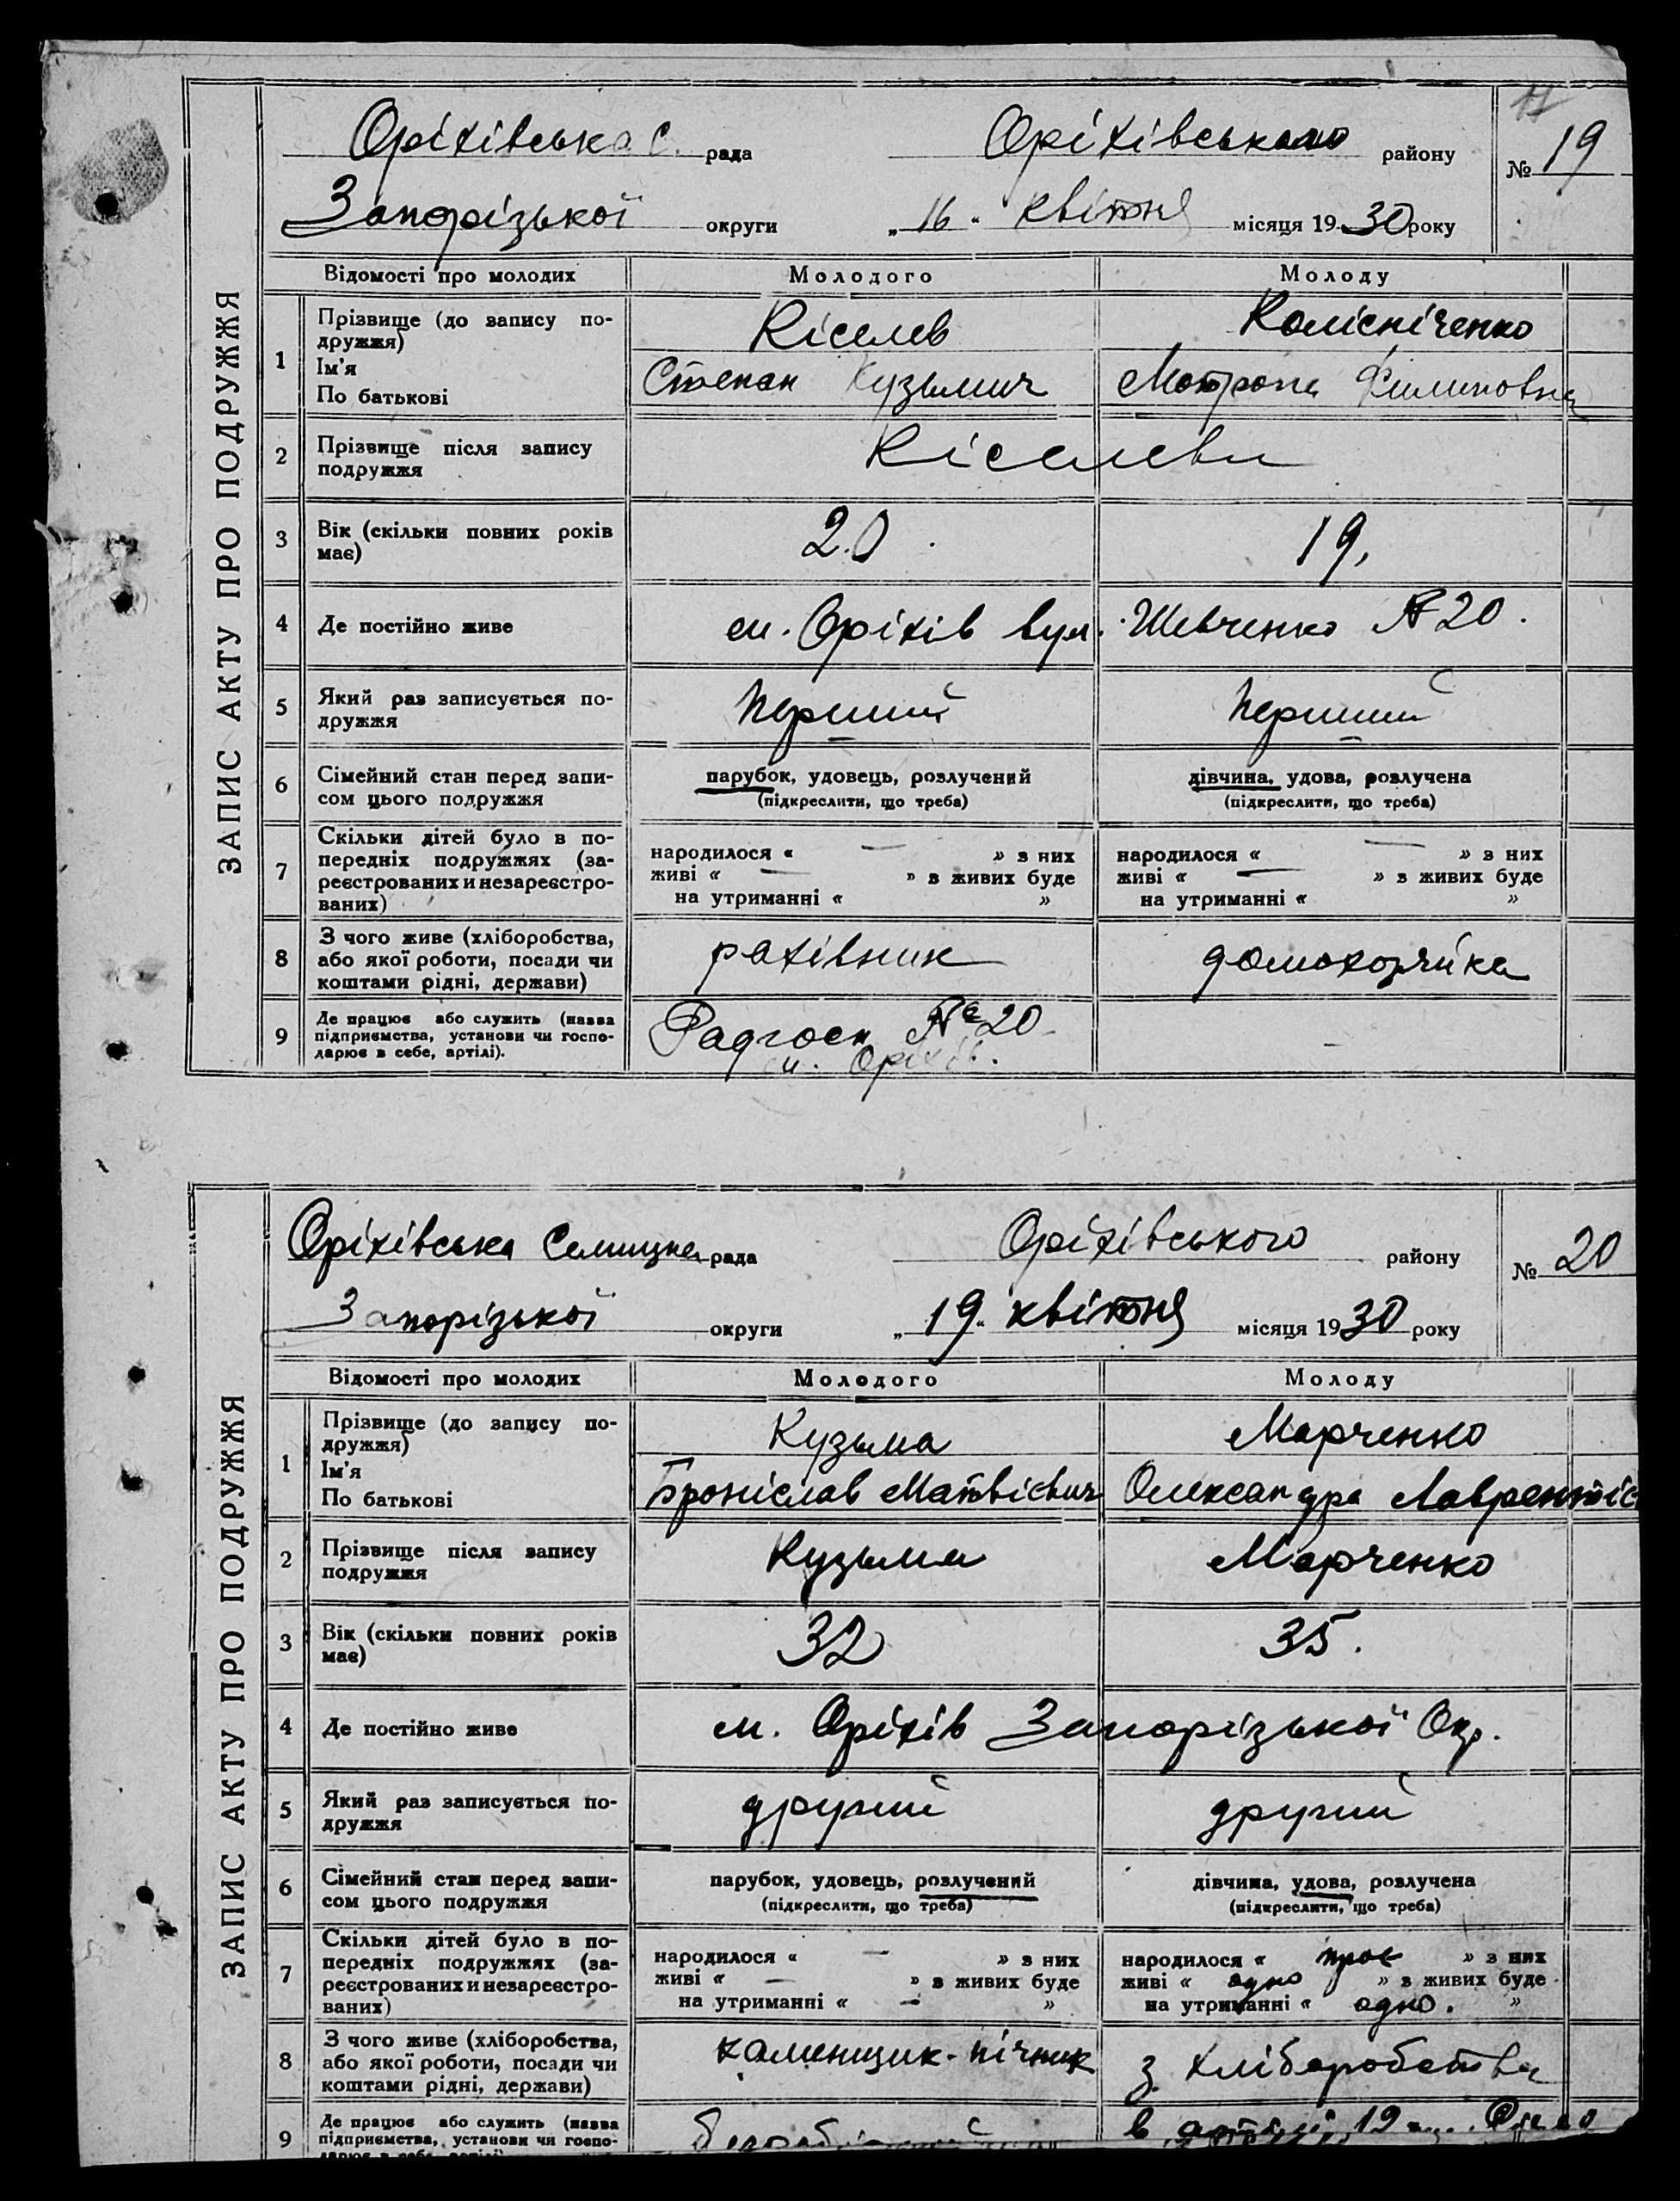 ЗАПИС АКТУ ПРО ПОДРУЖЖЯ
Оріхівська С. рада Оріхівського району № 19
Запорізької округи „16“ квітня місяця 1930 року
Відомості про молодих Молодого Молоду
1 Прізвище (до запису по-
дружжя) Кіселев Колісніченко
Ім'я
По батькові Степан Кузьмич Мотрона Филиповна
2 Прізвище після запису
подружжя Кіселеви
3 Вік (скільки повних років
має) 20. 19,
4 Де постійно живе м. Оріхів вул. Шевченко № 20.
5 Який раз записується по-
дружжя Перший Перший
6 Сімейний стан перед запи-
сом цього подружжя парубок, удовець, розлучений дівчина, удова, розлучена
(підкреслити, що треба) (підкреслити, що треба)
7 Скільки дітей було в по-
передніх подружжях (за-
реєстрованих и незареєстро-
ваних) народилося « — » з них народилося « — » з них
живі « — » з живих буде живі « — » з живих буде
на утриманні « » на утриманні « »
8 З чого живе (хліборобства,
або якої роботи, посади чи
коштами рідні, держави) рахівник домохозяйка
9 Де працює або служить (назва
підприємства, установи чи госпо-
дарює в себе, артілі). Радгосп № 20
м. Оріхів.
ЗАПИС АКТУ ПРО ПОДРУЖЖЯ
Оріхівська Селищна рада Оріхівського району № 20
Запорізької округи „19“ квітня місяця 1930 року
Відомості про молодих Молодого Молоду
1 Прізвище (до запису по-
дружжя) Кузьма Марченко
Ім'я
По батькові Броніслав Матвієвич Олександра Лаврентіє
2 Прізвище після запису
подружжя Кузьма Марченко
3 Вік (скільки повних років
має) 32 35.
4 Де постійно живе м. Оріхів Запорізької Окр.
5 Який раз записується по-
дружжя другий другий
6 Сімейний стан перед запи-
сом цього подружжя парубок, удовець, розлучений дівчина, удова, розлучена
(підкреслити, що треба) (підкреслити, що треба)
7 Скільки дітей було в по-
передніх подружжях (за-
реєстрованих и незареєстро-
ваних) народилося « — » з них народилося « троє » з них
живі « — » з живих буде живі « одно » з живих буде
на утриманні « — » на утриманні « одно. »
8 З чого живе (хліборобства,
або якої роботи, посади чи
коштами рідні, держави) каменщик-пічник з хліборобства
9 Де працює або служить (назва
підприємства, установи чи госпо-
в артілі 19